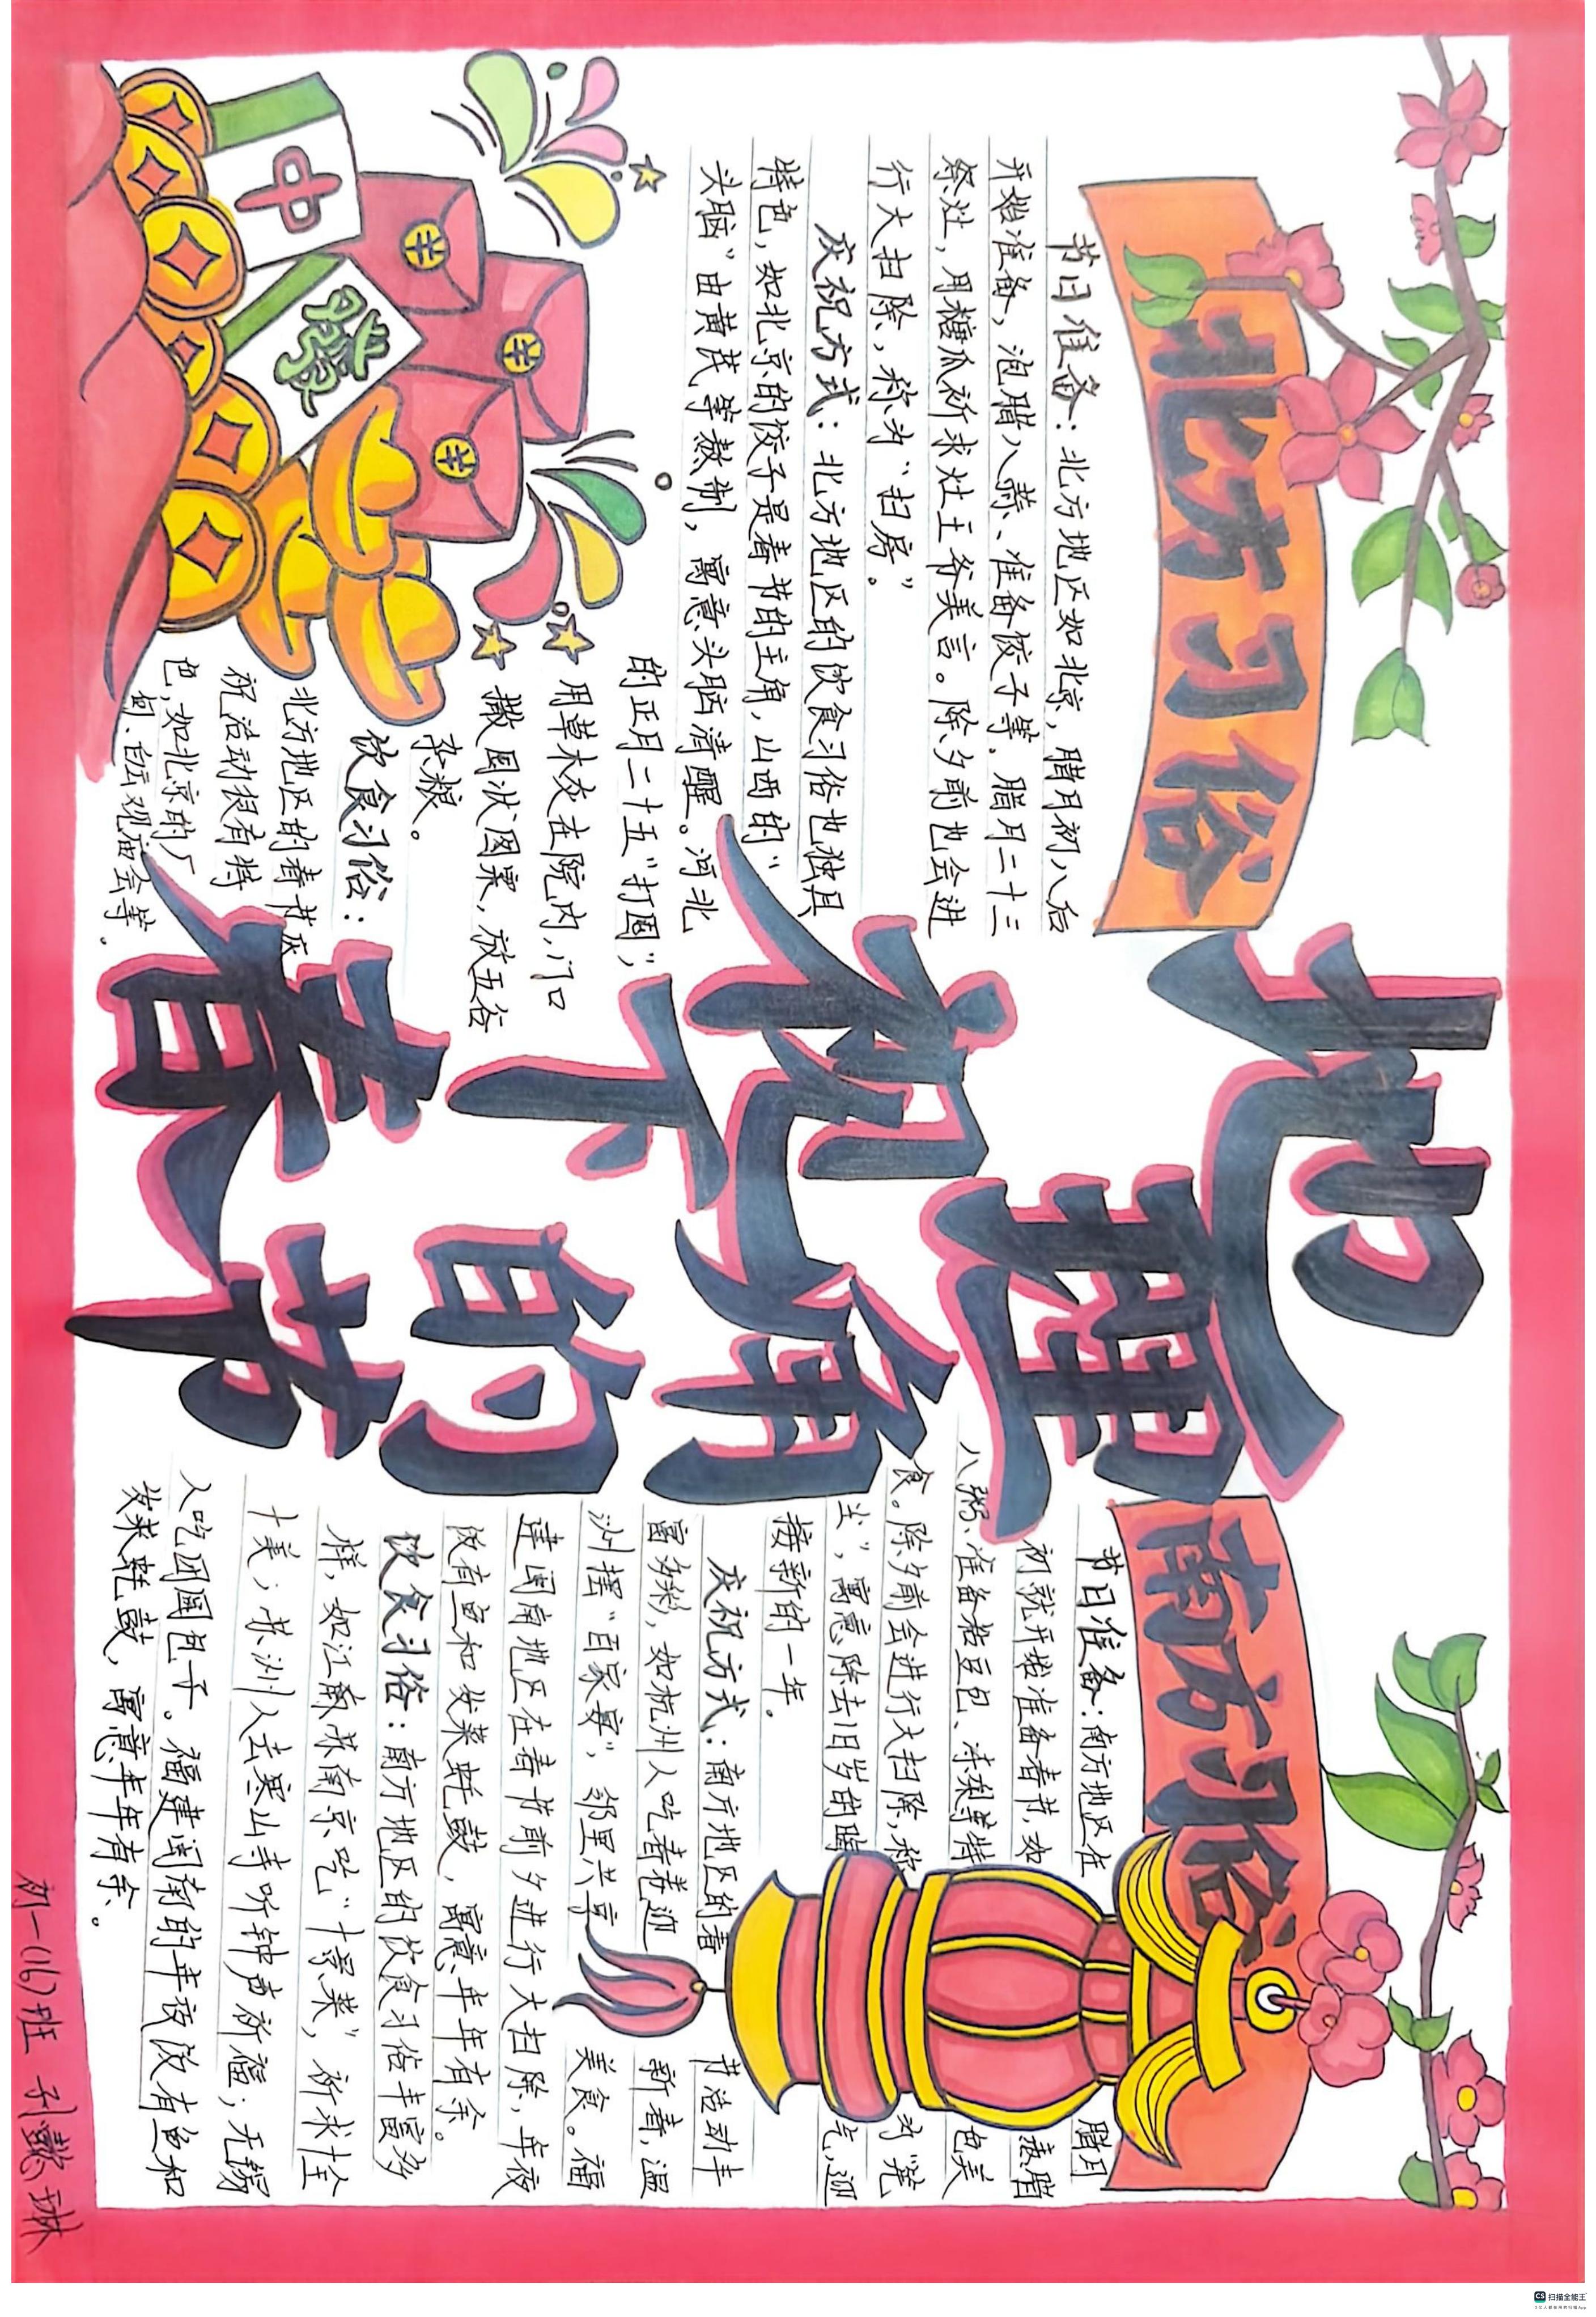 地理
视角下
的
春节
北方习俗
节日准备：北方地区如北京，腊月初八后
开始准备，泡腊八蒜、准备饺子等。腊月二十三
祭灶，用糖瓜祈求灶王爷美言。除夕前也会进
行大扫除，称为“扫房”。
庆祝方式：北方地区的饮食习俗也独具
特色，如北京的饺子是春节的主角，山西的“
头脑”由黄芪等熬制，寓意头脑清醒。河北
的正月二十五“打囤”，
用草木灰在院内、门口
撒囤状图案，放五谷
杂粮。
饮食习俗：
北方地区的春节庆
祝活动很有特
色，如北京的厂
甸、白云观庙会等。
南方习俗
节日准备：南方地区在腊月
初就开始准备春节，如熬腊
八粥、准备粘豆包、冻梨等特色美
食。除夕前会进行大扫除，称为“掸
尘”，寓意除去旧岁的晦气，迎
接新的一年。
庆祝方式：南方地区的春节活动丰
富多彩，如杭州人吃春卷迎新春，温
州摆“百家宴”，邻里共享美食。福
建闽南地区在春节前夕进行大扫除，年夜
饭有鱼和发菜蚝鼓，寓意年年有余。
饮食习俗：南方地区的饮食习俗丰富多
样，如江南苏南京吃“十景菜”，祈求十全
十美；苏州人去寒山寺听钟声祈福；无锡
人吃团圆包子。福建闽南的年夜饭有鱼和
发菜蚝鼓，寓意年年有余。
中
發
初一(16)班
CS 扫描全能王